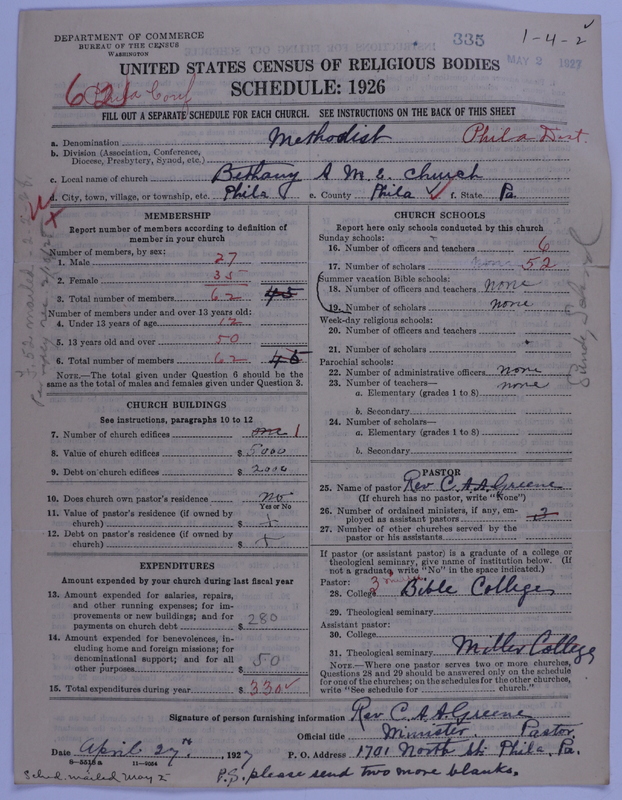 DEPARTMENT OF COMMERCE
BUREAU OF THE CENSUS
WASHINGTON
335
1-4-2
MAY 2 1927
UNITED STATES CENSUS OF RELIGIOUS BODIES
SCHEDULE: 1926
62 Phila Conf
FILL OUT A SEPARATE SCHEDULE FOR EACH CHURCH. SEE INSTRUCTIONS ON THE BACK OF THIS SHEET
a. Denomination Methodist Phila Dist
b. Division (Association, Conference, Diocese, Presbytery, Synod, etc.)
c. Local name of church Bethany A M E church
d. City, town, village, or township, etc. Phila e. County Phila ✓ f. State Pa.
MEMBERSHIP
Report number of members according to definition of
member in your church
Number of members, by sex:
1. Male 27
2. Female 35
3. Total number of members 62 45
Number of members under and over 13 years old:
4. Under 13 years of age 12
5. 13 years old and over 50
6. Total number of members 62 45
NOTE.—The total given under Question 6 should be
same as the total of males and females given under Question 3.
CHURCH BUILDINGS
See instructions, paragraphs 10 to 12
7. Number of church edifices one 1
8. Value of church edifices $ 5000
9. Debt on church edifices $ 2000
10. Does church own pastor's residence No
Yes or No
11. Value of pastor's residence (if owned by
church) $ +
12. Debt on pastor's residence (if owned by
church) $ +
EXPENDITURES
Amount expended by your church during last fiscal year
13. Amount expended for salaries, repairs,
and other running expenses; for im-
provements or new buildings; and for
payments on church debt $ 280
14. Amount expended for benevolences, in-
cluding home and foreign missions; for
denominational support; and for all
other purposes $ 50
15. Total expenditures during year $ 330 ✓
CHURCH SCHOOLS
Report here only schools conducted by this church
Sunday schools:
16. Number of officers and teachers 6
17. Number of scholars none 52
Summer vacation Bible schools:
18. Number of officers and teachers none
19. Number of scholars none
Week-day religious schools:
20. Number of officers and teachers
21. Number of scholars
Parochial schools:
22. Number of administrative officers none
23. Number of teachers— none
a. Elementary (grades 1 to 8)
b. Secondary
24. Number of scholars—
a. Elementary (grades 1 to 8)
b. Secondary
Sunday School
PASTOR
25. Name of pastor Rev C. A. A. Greene
(If church has no pastor, write "None")
26. Number of ordained ministers, if any, em-
ployed as assistant pastors 2
27. Number of other churches served by the
pastor or his assistants
If pastor (or assistant pastor) is a graduate of a college or
theological seminary, give name of institution below. (If
not a graduate, write "No" in the space indicated.)
Pastor:
28. College 3 Bible College
29. Theological seminary
Assistant pastor:
30. College
31. Theological seminary Miller College
NOTE.—Where one pastor serves two or more churches,
Questions 28 and 29 should be answered only on the schedule
for one of the churches; on the schedules for the other churches,
write "See schedule for church."
Signature of person furnishing information Rev C. A. A. Greene
Official title Minister Pastor.
Date April 27th, 1927 P. O. Address 1701 North St. Phila, Pa.
8—5518a 11—9054
Sched. mailed May 2
P.S. please send two more blanks.